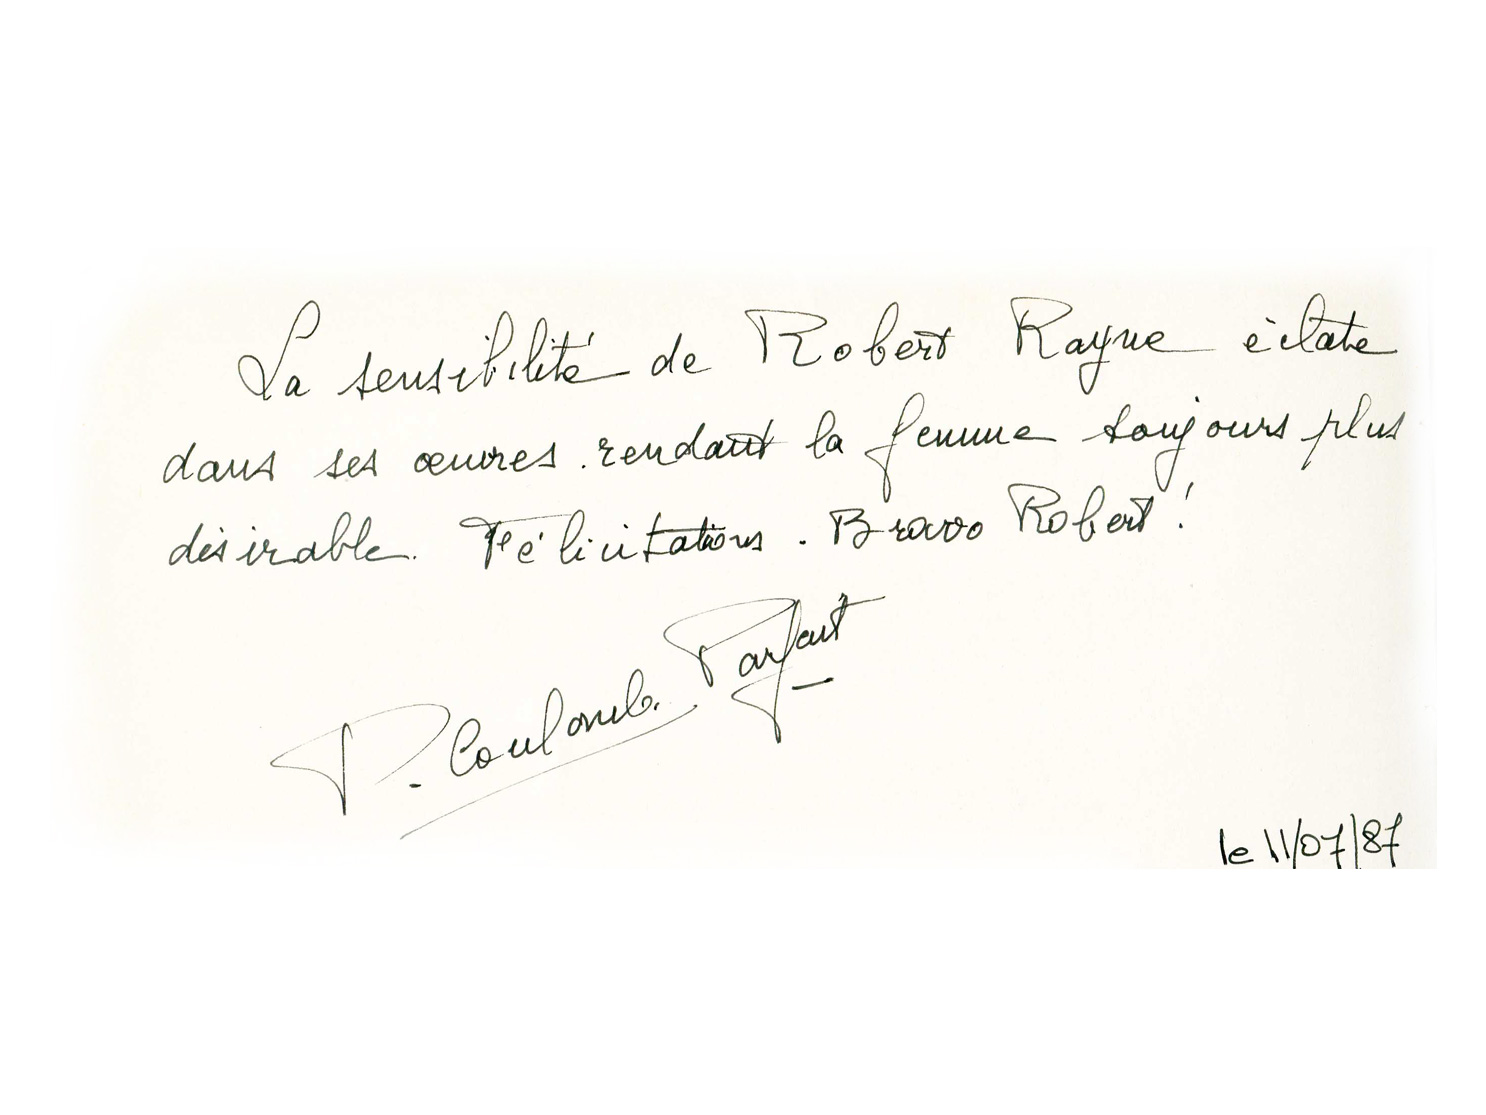 La sensibilité de Robert Rayne éclate
dans ses œuvres rendant la femme toujours plus
désirable. Félicitations. Bravo Robert !
P. Coulomb. Parfait
le 11/07/87